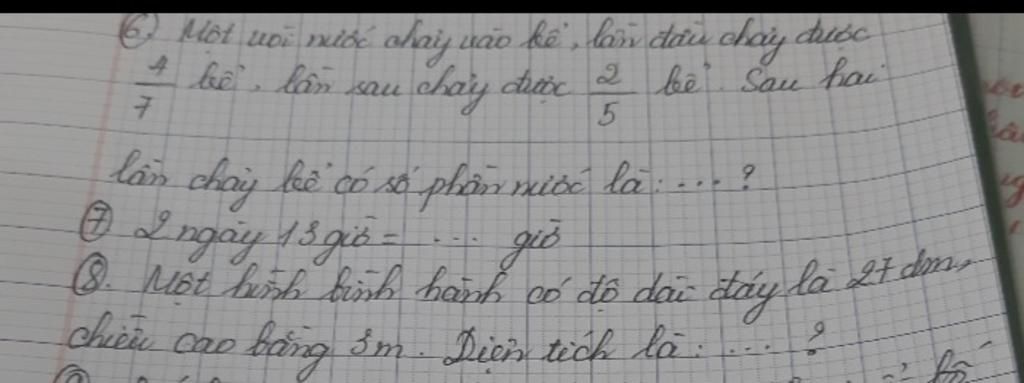 6) Một vòi nước chảy vào bể, lần đầu chảy được
4/7 bể, lần sau chảy được 2/5 bể. Sau hai
lần chảy bể có số phần nước là: ... ?
7) 2 ngày 13 giờ = ... giờ
8. Một hình bình hành có độ dài đáy là 27 dm,
chiều cao bằng 3m. Diện tích là: ... ?